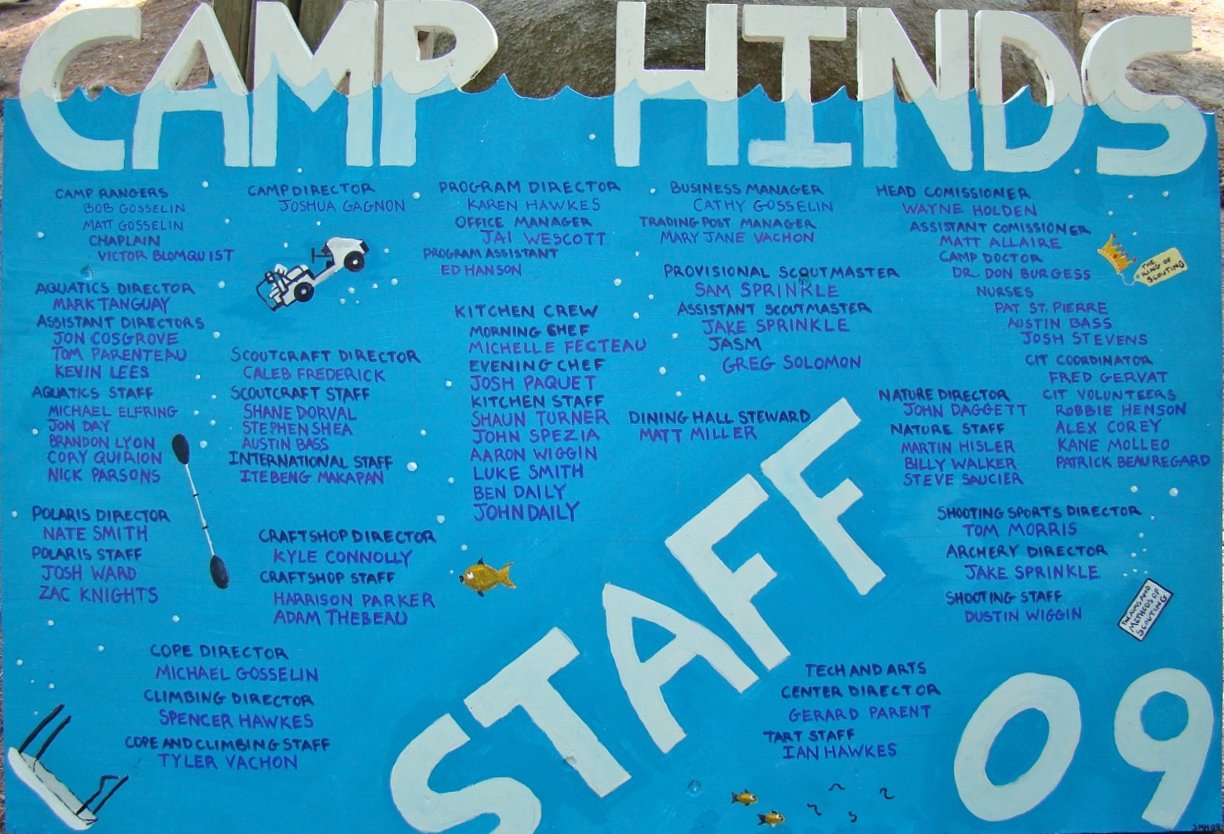 CAMP HINDS
CAMP RANGERS
BOB GOSSELIN
MATT GOSSELIN
CHAPLAIN
VICTOR BLOMQUIST
CAMP DIRECTOR
JOSHUA GAGNON
PROGRAM DIRECTOR
KAREN HAWKES
OFFICE MANAGER
JAI WESCOTT
PROGRAM ASSISTANT
ED HANSON
BUSINESS MANAGER
CATHY GOSSELIN
TRADING POST MANAGER
MARY JANE VACHON
HEAD COMISSIONER
WAYNE HOLDEN
ASSISTANT COMISSIONER
MATT ALLAIRE
CAMP DOCTOR
DR. DON BURGESS
NURSES
PAT ST. PIERRE
AUSTIN BASS
JOSH STEVENS
CIT COORDINATOR
FRED GERVAT
CIT VOLUNTEERS
ROBBIE HENSON
ALEX COREY
KANE MOLLEO
PATRICK BEAUREGARD
THE
KING OF
SCOUTING
AQUATICS DIRECTOR
MARK TANGUAY
ASSISTANT DIRECTORS
JON COSGROVE
TOM PARENTEAU
KEVIN LEES
AQUATICS STAFF
MICHAEL ELFRING
JON DAY
BRANDON LYON
CORY QUIRION
NICK PARSONS
SCOUTCRAFT DIRECTOR
CALEB FREDERICK
SCOUTCRAFT STAFF
SHANE DORVAL
STEPHEN SHEA
AUSTIN BASS
INTERNATIONAL STAFF
ITEBENG MAKAPAN
KITCHEN CREW
MORNING CHEF
MICHELLE FECTEAU
EVENING CHEF
JOSH PAQUET
KITCHEN STAFF
SHAUN TURNER
JOHN SPEZIA
AARON WIGGIN
LUKE SMITH
BEN DAILY
JOHN DAILY
PROVISIONAL SCOUTMASTER
SAM SPRINKLE
ASSISTANT SCOUTMASTER
JAKE SPRINKLE
JASM
GREG SOLOMON
DINING HALL STEWARD
MATT MILLER
NATURE DIRECTOR
JOHN DAGGETT
NATURE STAFF
MARTIN HISLER
BILLY WALKER
STEVE SAUCIER
POLARIS DIRECTOR
NATE SMITH
POLARIS STAFF
JOSH WARD
ZAC KNIGHTS
CRAFTSHOP DIRECTOR
KYLE CONNOLLY
CRAFTSHOP STAFF
HARRISON PARKER
ADAM THEBEAU
SHOOTING SPORTS DIRECTOR
TOM MORRIS
ARCHERY DIRECTOR
JAKE SPRINKLE
SHOOTING STAFF
DUSTIN WIGGIN
THE AIMS AND
METHODS OF
SCOUTING
COPE DIRECTOR
MICHAEL GOSSELIN
CLIMBING DIRECTOR
SPENCER HAWKES
COPE AND CLIMBING STAFF
TYLER VACHON
TECH AND ARTS
CENTER DIRECTOR
GERARD PARENT
TART STAFF
IAN HAWKES
STAFF
09